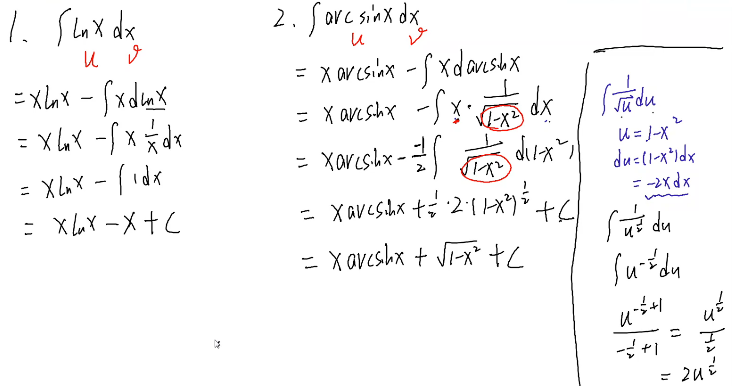 1. ∫ lnx dx
u v
= xlnx − ∫ x dlnx
= xlnx − ∫ x 1/x dx
= xlnx − ∫ 1dx
= xlnx − x + C
2. ∫ arcsinx dx
u v
= xarcsinx − ∫ x darcsinx
= xarcsinx − ∫ x · 1/√(1-x²) dx
= xarcsinx − -1/2 ∫ 1/√(1-x²) d(1-x²)
= xarcsinx + 1/2 · 2 · (1-x²)^(1/2) + C
= xarcsinx + √(1-x²) + C
∫ 1/√u du
u = 1-x²
du = (1-x²)dx
= -2xdx
∫ 1/u^(1/2) du
∫ u^(-1/2) du
u^(-1/2+1) / (-1/2+1) = u^(1/2) / (1/2)
= 2u^(1/2)